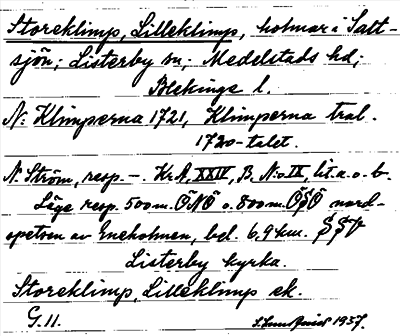 Storeklimp, Lilleklimp, holmar i Salt-
sjön; Listerby sn; Medelstads hd;
Blekinge l.
N: Klimperna 1721, Klimperna tral.
1730-talet.
N. Ström, resp. –. Kr.A, XXIV, B, N:o IX, lit. a. o. b.
Läge resp. 500 m. ÖNÖ o. 800 m. ÖSÖ nord-
spetsen av Eneholmen, bel. 6,9 km. SSV
Listerby kyrka.
Storeklimp, Lilleklimp ek.
G. 11. 1937.